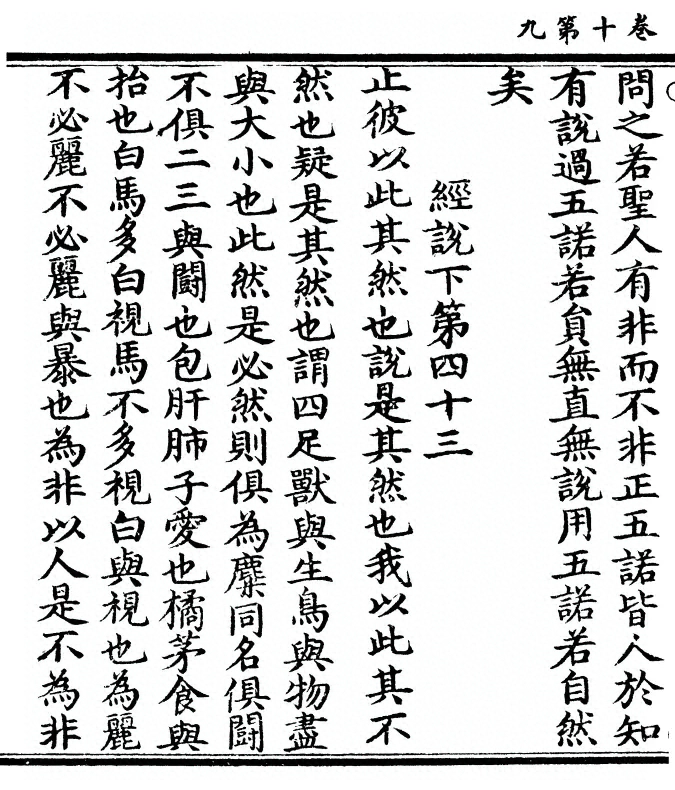 卷十第九
問之若聖人有非而不非正五諾皆人於知
有說過五諾若貟無直無說用五諾若自然
矣
經說下第四十三
止彼以此其然也說是其然也我以此其不
然也疑是其然也謂四足獸與生鳥與物盡
與大小也此然是必然則俱為麋同名俱鬭
不俱二三與鬭也包肝肺子愛也橘茅食與
抬也白馬多白視馬不多視白與視也為麗
不必麗不必麗與暴也為非以人是不為非